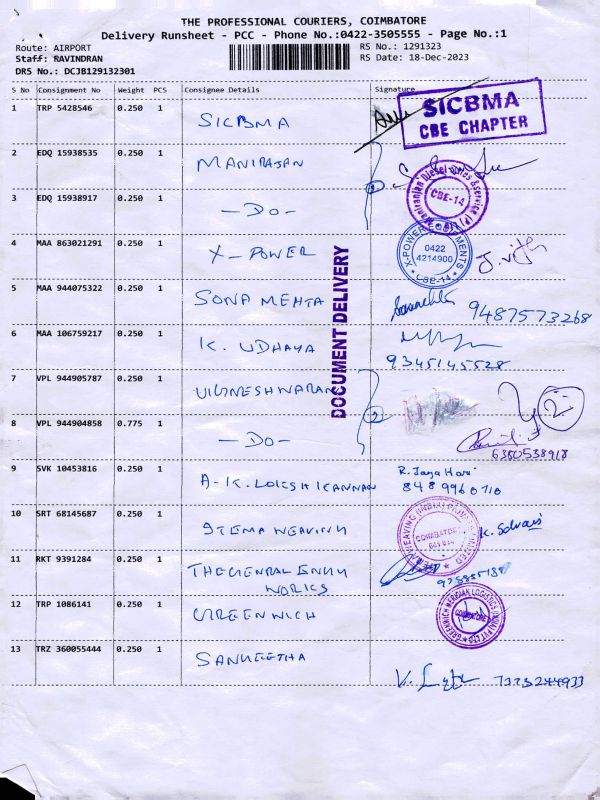 THE PROFESSIONAL COURIERS, COIMBATORE
Delivery Runsheet - PCC - Phone No.:0422-3505555 - Page No.:1
Route: AIRPORT
RS No.: 1291323
Staff: RAVINDRAN
RS Date: 18-Dec-2023
DRS No.: DCJB129132301
S No Consignment No Weight PCS Consignee Details Signature
1 TRP 5428546 0.250 1 SICBMA
SICBMA
CBE CHAPTER
2 EDQ 15938535 0.250 1 MANIRAJAN
3 EDQ 15938917 0.250 1 -DO-
CBE-14
4 MAA 863021291 0.250 1 X-POWER
0422
4214900
CBE-14
DOCUMENT DELIVERY
5 MAA 944075322 0.250 1 SONA MEHTA 9487573268
6 MAA 106759217 0.250 1 K. UDHAYA
9345145528
7 VPL 944905787 0.250 1 VIGNESHWARAN
8 VPL 944904858 0.775 1 -DO-
6380538918
9 SVK 10453816 0.250 1 A-K. LOKESH KANNAN R. Jaya Hari
8489960710
10 SRT 68145687 0.250 1 ITEMA WEAVING K. Selvais
11 RKT 9391284 0.250 1 THEGENRAL ENGG
WORKS
12 TRP 1086141 0.250 1 GREENWICH
GREENWICH MERIDIAN LOGISTICS (INDIA) PVT LTD
13 TRZ 360055444 0.250 1 SANGEETHA
7373244933